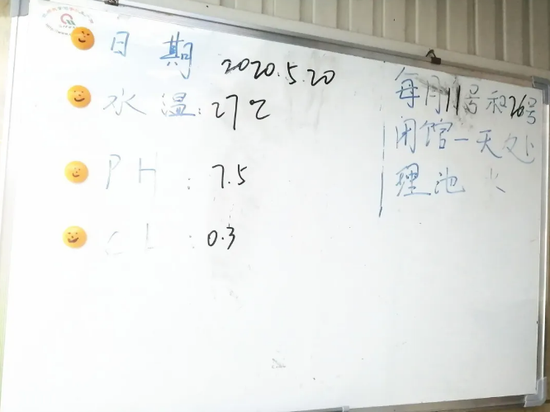 日期 2020.5.20
水温:27℃
PH:7.5
CL:0.3
每月11号和26号
闭馆一天处
理池水